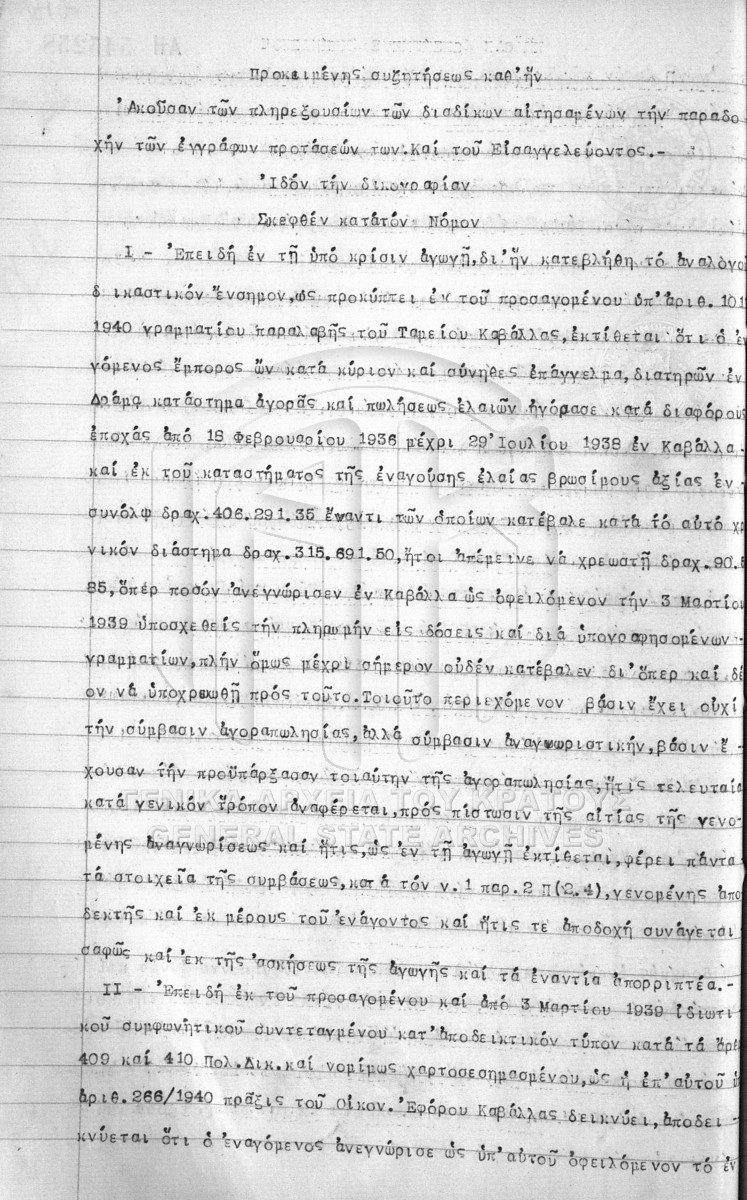 Προκειμένης συζητήσεως καθ'ἥν
'Ακοῦσαν τῶν πληρεξουσίων τῶν διαδίκων αἰτησαμένων τήν παραδο
χήν τῶν ἐγγράφων προτάσεών των.Καί τοῦ Εἰσαγγελεύοντος.-
'Ιδόν τήν δικογραφίαν
Σκεφθέν κατάτόν Νόμον
I - 'Επειδή ἐν τῇ ὑπό κρίσιν ἀγωγῇ,δι'ἥν κατεβλήθη τό ἀναλόγο
δικαστικόν ἔνσημον,ὡς προκύπτει ἐκ τοῦ προσαγομένου ὑπ'ἀριθ.
1940 γραμματίου παραλαβῆς τοῦ Ταμείου Καβάλλας,ἐκτίθεται ὅτι ὁ ἐν
γόμενος ἔμπορος ὤν κατά κύριον καί σύνηθες ἐπάγγελμα,διατηρῶν ἐν
Δράμᾳ κατάστημα ἀγορᾶς καί πωλήσεως ἐλαιῶν ἠγόρασε κατά διαφόρους
ἐποχάς ἀπό 18 Φεβρουαρίου 1936 μέχρι 29'Ιουλίου 1938 ἐν Καβάλλᾳ.
καί ἐκ τοῦ καταστήματος τῆς ἐναγούσης ἐλαίας βρωσίμους ἀξίας ἐν
συνόλῳ δραχ.406.291.35 ἔναντι τῶν ὁποίων κατέβαλε κατά τό αὐτό χρ
νικόν διάστημα δραχ.315.691.50,ἤτοι ἀπέμεινε νά χρεωστῇ δραχ.90.
85,ὅπέρ ποσόν ἀνεγνώρισεν ἐν Καβάλλᾳ ὡς ὀφειλόμενον τήν 3 Μαρτίου
1939 ὑποσχεθείς τήν πληρωμήν εἰς δόσεις καί διά ὑπογραφησομένων -
γραμματίων,πλήν ὅμως μέχρι σήμερον οὐδέν κατέβαλεν δι'ὅπερ καί δέ
ον νά ὑποχρεωθῇ πρός τοῦτο.Τοιοῦτο περιεχόμενον βάσιν ἔχει οὐχί
τήν σύμβασιν ἀγοραπωλησίας,ἀλλά σύμβασιν ἀναγνωριστικήν,βάσιν ἔ -
χουσαν τήν προϋπάρξασαν τοιαύτην τῆς ἀγοραπωλησίας,ἥτις τελευταία
κατά γενικόν τρόπον ἀναφέρεται,πρός πίστωσιν τῆς αἰτίας τῆς γενο
μένης ἀναγνωρίσεως καί ἥτις,ὡς ἐν τῇ ἀγωγῇ ἐκτίθεται,φέρει πάντα
τά στοιχεῖα τῆς συμβάσεως,κατά τόν ν.1 παρ.2 Π(2.4),γενομένης ἀπο
δεκτῆς καί ἐκ μέρους τοῦ ἐνάγοντος καί ἥτις τε ἀποδοχή συνάγεται
σαφῶς καί ἐκ τῆς ἀσκήσεως τῆς ἀγωγῆς καί τά ἐναντία ἀπορριπτέα.-
II - 'Επειδή ἐκ τοῦ προσαγομένου καί ἀπό 3 Μαρτίου 1939 ἰδιωτι -
κοῦ συμφωνητικοῦ συντεταγμένου κατ'ἀποδεικτικόν τύπον κατά τά ἄρθ
409 καί 410 Πολ.Δικ.καί νομίμως χαρτοσεσημασμένου,ὡς ἡ ἐπ'αὐτοῦ ὑ
ἀριθ.266/1940 πρᾶξις τοῦ Οἰκον.'Εφόρου Καβάλλας δεικνύει,ἀποδει -
κνύεται ὅτι ὁ ἐναγόμενος ἀνεγνώρισε ὡς ὑπ'αὐτοῦ ὀφειλόμενον τό ἐν
ΓΕΝΙΚΑ ΑΡΧΕΙΑ ΤΟΥ ΚΡΑΤΟΥΣ
GENERAL STATE ARCHIVES